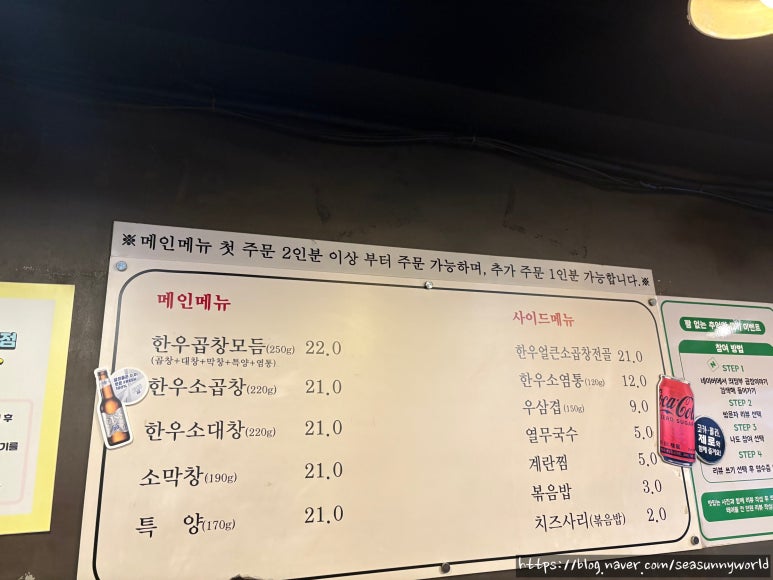 ※메인메뉴 첫 주문 2인분 이상 부터 주문 가능하며, 추가 주문 1인분 가능합니다.※
메인메뉴
한우곱창모듬(250g) 22.0
(곱창+대창+막창+특양+염통)
한우소곱창(220g) 21.0
한우소대창(220g) 21.0
소막창(190g) 21.0
특 양(170g) 21.0
사이드메뉴
한우얼큰소곱창전골 21.0
한우소염통(120g) 12.0
우삼겹(150g) 9.0
열무국수 5.0
계란찜 5.0
볶음밥 3.0
치즈사리(볶음밥) 2.0
Coca-Col
ZERO SUGAR
제로와
참여 방법
STEP 1
검색해 들어가기
STEP 2
방문자 리뷰 선택
STEP 3
나도 참여 선택
STEP 4
리뷰 쓰기 선택 후
점
후
기를
https://blog.naver.com/seasunnyworld